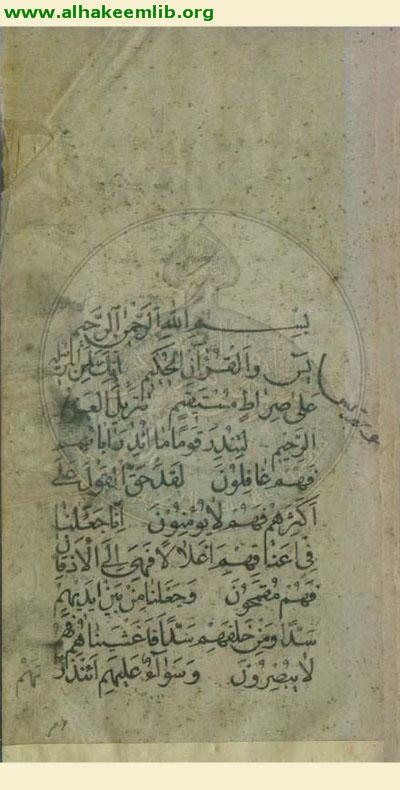 www.alhakeemlib.org
بِسْمِ اللَّهِ الرَّحْمٰنِ الرَّحِيمِ
يس وَالْقُرْآنِ الْحَكِيمِ اِنَّكَ لَمِنَ الْمُرْسَلِينَ
عَلٰى صِرَاطٍ مُسْتَقِيمٍ تَنْزِيلَ الْعَزِيزِ
الرَّحِيمِ لِتُنْذِرَ قَوْمًا مَا اُنْذِرَ اٰبَاؤُهُمْ
فَهُمْ غَافِلُونَ لَقَدْ حَقَّ الْقَوْلُ عَلٰى
اَكْثَرِهِمْ فَهُمْ لَا يُؤْمِنُونَ اِنَّا جَعَلْنَا
فِى اَعْنَاقِهِمْ اَغْلَالًا فَهِىَ اِلَى الْاَذْقَانِ
فَهُمْ مُقْمَحُونَ وَجَعَلْنَا مِنْ بَيْنِ اَيْدِيهِمْ
سَدًّا وَمِنْ خَلْفِهِمْ سَدًّا فَاَغْشَيْنَاهُمْ فَهُمْ
لَا يُبْصِرُونَ وَسَوَآءٌ عَلَيْهِمْ ءَاَنْذَرْ
تَهُمْ